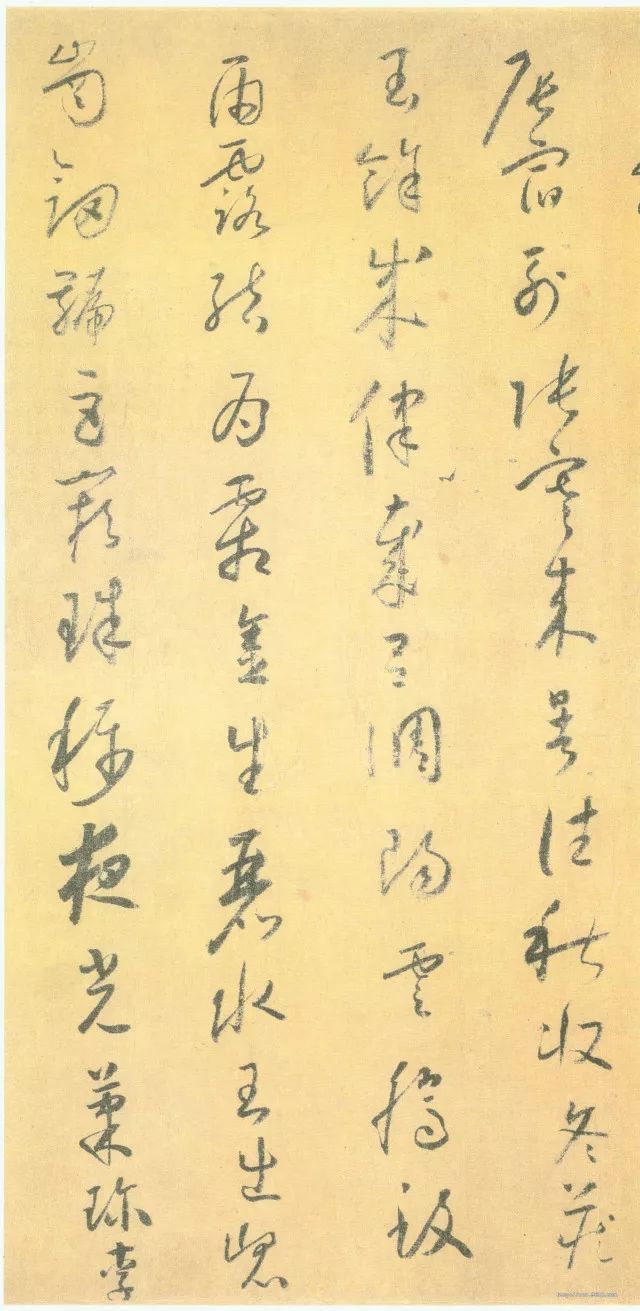 辰宿列張寒來暑往秋收冬藏
閏餘成律歲呂調陽雲騰致
雨露結為霜金生麗水玉出崐
崗劍號巨闕珠稱夜光菓珍李